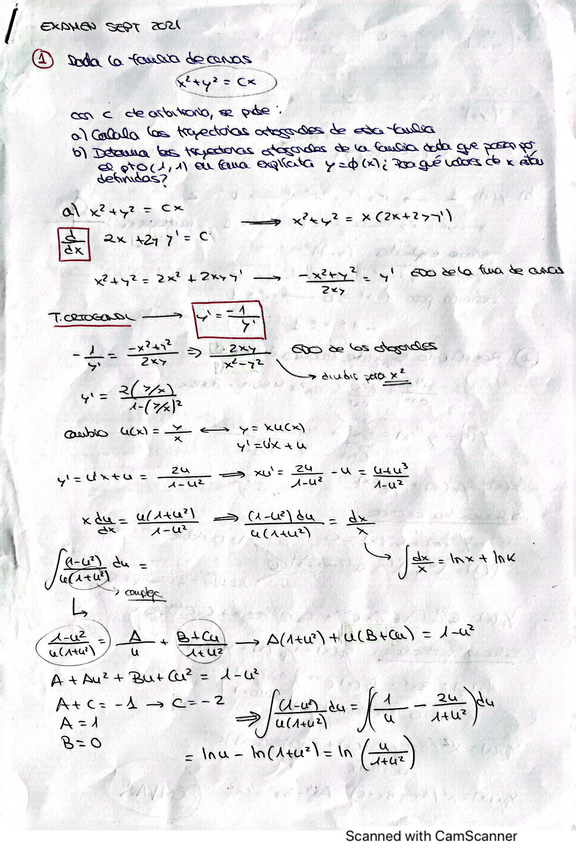 EXAMEN SEPT 2021
① Dada la familia de curvas
x²+y² = Cx
con C cte arbitraria, se pide:
a) Calcula las trayectorias ortogonales de esta familia
b) Determina las trayectorias ortogonales de la familia dada que pasan por
el pto (1,1) en forma explícita y=ϕ(x) ¿Para qué valores de x están
definidas?
a) x²+y² = Cx ⟶ x²+y² = x(2x+2yy')
d/dx 2x+2y y' = C
x²+y² = 2x²+2xyy' ⟶ (-x²+y²)/(2xy) = y' EDO de la fma de curvas
T. ORTOGONAL ⟶ y' = -1/y'
-1/y' = (-x²+y²)/(2xy) ⇒ 2xy/(x²-y²) EDO de las ortogonales
dividir para x²
y' = 2(y/x)/(1-(y/x)²)
cambio u(x) = y/x ⟷ y = xu(x)
y' = u'x+u
y' = u'x+u = 2u/(1-u²) ⟹ xu' = 2u/(1-u²) - u = (u+u³)/(1-u²)
x du/dx = u(1+u²)/(1-u²) ⟹ (1-u²)du/(u(1+u²)) = dx/x
∫(1-u²)/(u(1+u²)) du = ∫dx/x = lnx + lnK
(1-u²)/(u(1+u²)) = A/u + (B+Cu)/(1+u²) ⟶ A(1+u²)+u(B+Cu) = 1-u²
A+Au²+Bu+Cu² = 1-u²
A+C = -1 → C = -2
A = 1 ⟹ ∫(1-u²)/(u(1+u²)) du = ∫(1/u - 2u/(1+u²))du
B = 0
= lnu - ln(1+u²) = ln(u/(1+u²))
Scanned with CamScanner